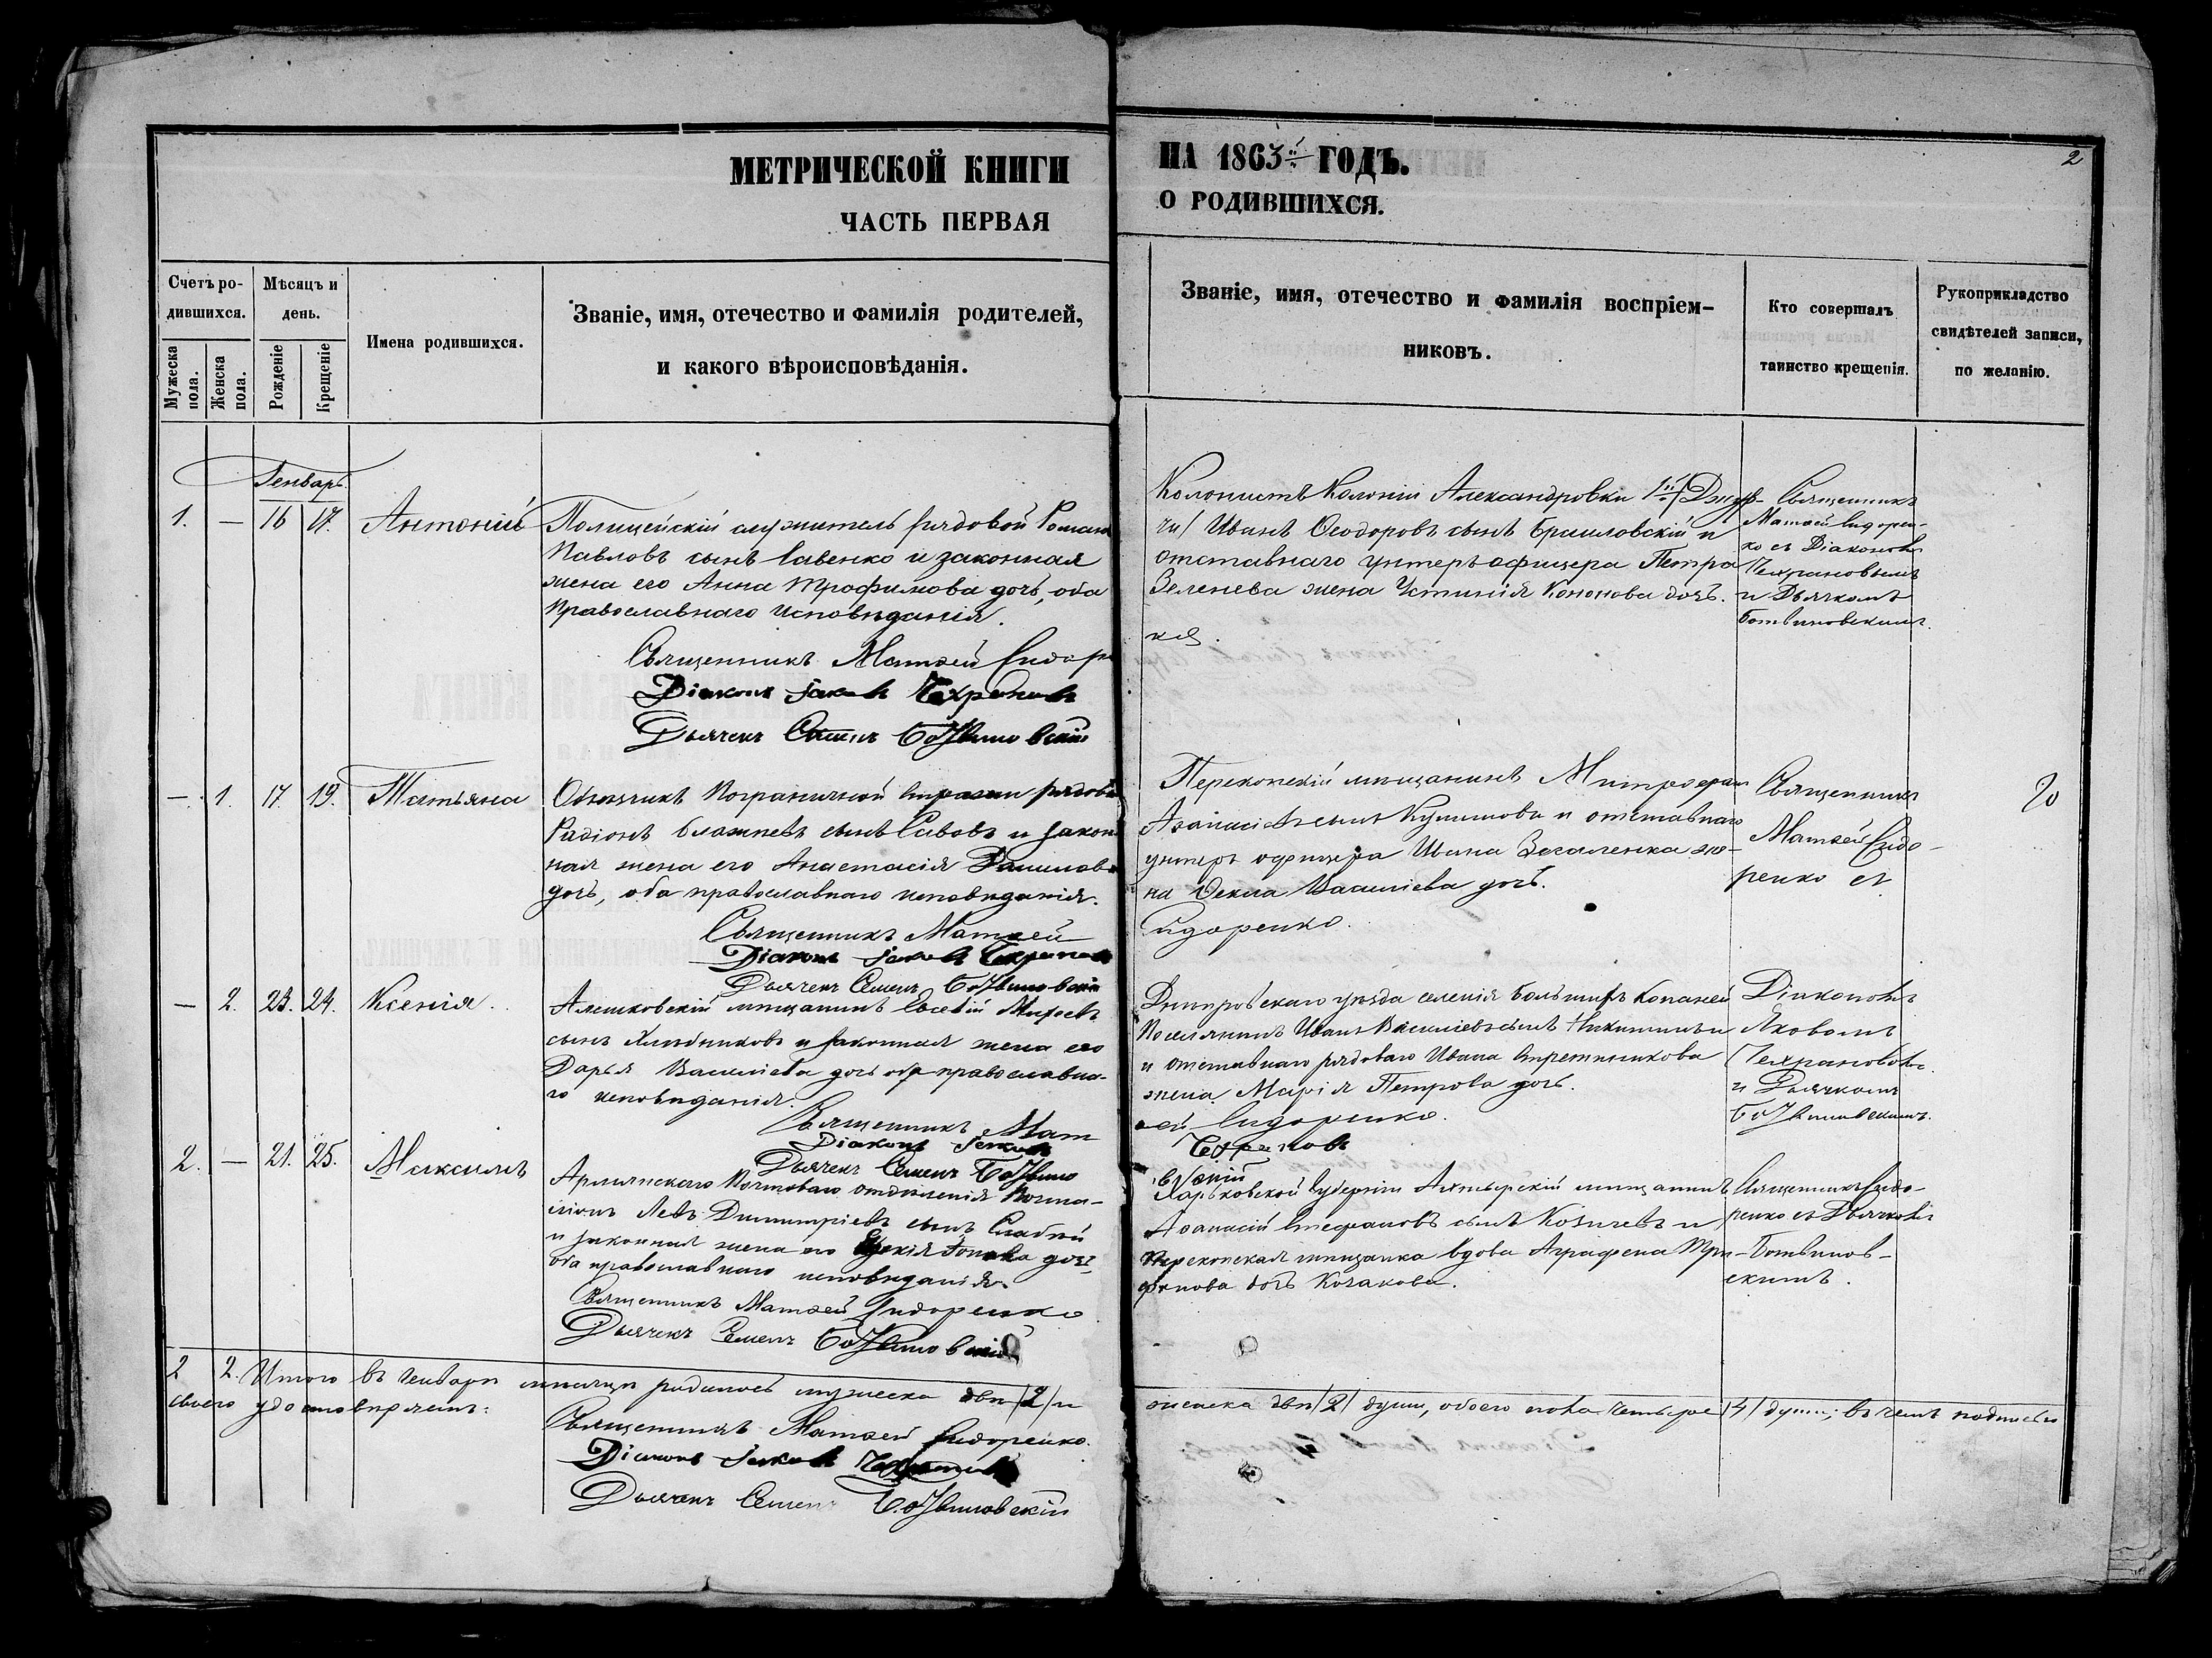 МЕТРИЧЕСКОЙ КНИГИ
ЧАСТЬ ПЕРВАЯ
НА 1863й ГОДЪ.
О РОДИВШИХСЯ.
2
Счетъ ро-
дившихся.
Мужеска пола.
Женска пола.
Мѣсяцъ и
день.
Рожденіе
Крещеніе
Имена родившихся.
Званіе, имя, отечество и фамилія родителей,
и какого вѣроисповѣданія.
Званіе, имя, отечество и фамилія воспріем-
никовъ.
Кто совершалъ
таинство крещенія.
Рукоприкладство
свидѣтелей записи,
по желанію.
Генварь
1. — 16 17. Антоній
Полицейскій служитель рядовой Роман
Павловъ сынъ Савенко и законная
жена его Анна Трофимова дочь, оба
православнаго исповѣданія.
Священникъ Матѳей Сидоре
Діаконъ Іаковъ Чехрановъ
Дьячекъ Семенъ Ботвиновскій
Колонистъ Колоніи Александровки
чи/ Иванъ Ѳеодоровъ сынъ Ераиловскій и
отставнаго унтеръ офицера Петра
Зеленева жена Устинія Кононова дочь.
Священникъ
Матѳей Сидорен-
ко съ Діакономъ
Чехрановымъ
и Дьячкомъ
Ботвиновскимъ.
— 1. 17. 19. Татьяна
Объѣзчикъ Пограничной Стражи рядово
Радіонъ сынъ Савовъ и закон
ная жена его Анастасія Данилова
дочь, оба православнаго исповѣданія.
Священникъ Матѳей
Діаконъ Іаковъ Чехрановъ
Дьячекъ Семенъ Ботвиновскій
Перекопскій мѣщанинъ Митрофан
Аѳанасіевъ сынъ Кулишовъ и отставнаго
унтеръ офицера Ивана же-
на Ѳекла Василіева дочь.
Сидоренко.
Священникъ
Матѳей Сидо-
ренко съ
— 2. 23. 24. Ксенія.
Алешковскій мѣщанинъ Евсевій
сынъ Хлѣбниковъ и законная жена его
Дарья Василіева дочь оба православна-
го исповѣданія.
Священникъ Мат
Діаконъ Іаковъ
Дьячекъ Семенъ Ботвино
Днѣпровскаго уѣзда селенія Большихъ Копаней
Поселянинъ Иванъ Василіевъ сынъ
и отставнаго рядоваго Ивана
жена Марія Петрова дочь.
ѳей Сидоренко.
Чехрановъ
вскій
Діакономъ
Яковомъ
Чехрановымъ
и Дьячкомъ
Ботвиновскимъ.
2. — 21. 25. Максимъ
Армянскаго Почтоваго отдѣленія Почта-
ліонъ Левъ Димитріевъ сынъ Слабкій
и законная жена его дочь,
оба православнаго исповѣданія.
Священникъ Матѳей Сидоренко
Дьячекъ Семенъ Ботвиновскій
Харьковской Губерніи Ахтырскій мѣщанинъ
Аѳанасій Стефановъ сынъ Козичевъ и
Перекопская мѣщанка вдова Аграфена Три-
фонова дочь Козакова.
Священникъ Сидо-
ренко съ Дьячкомъ
Ботвинов-
скимъ.
2 2. Итого въ Генварѣ мѣсяцѣ родилось мужеска двѣ /2/ и
женска двѣ /2/ души, обоего пола четыре /4/ души; въ чемъ подписомъ
своего удостовѣряемъ:
Священникъ Матѳей Сидоренко.
Діаконъ Іаковъ Чехрановъ
Дьячекъ Семенъ Ботвиновскій